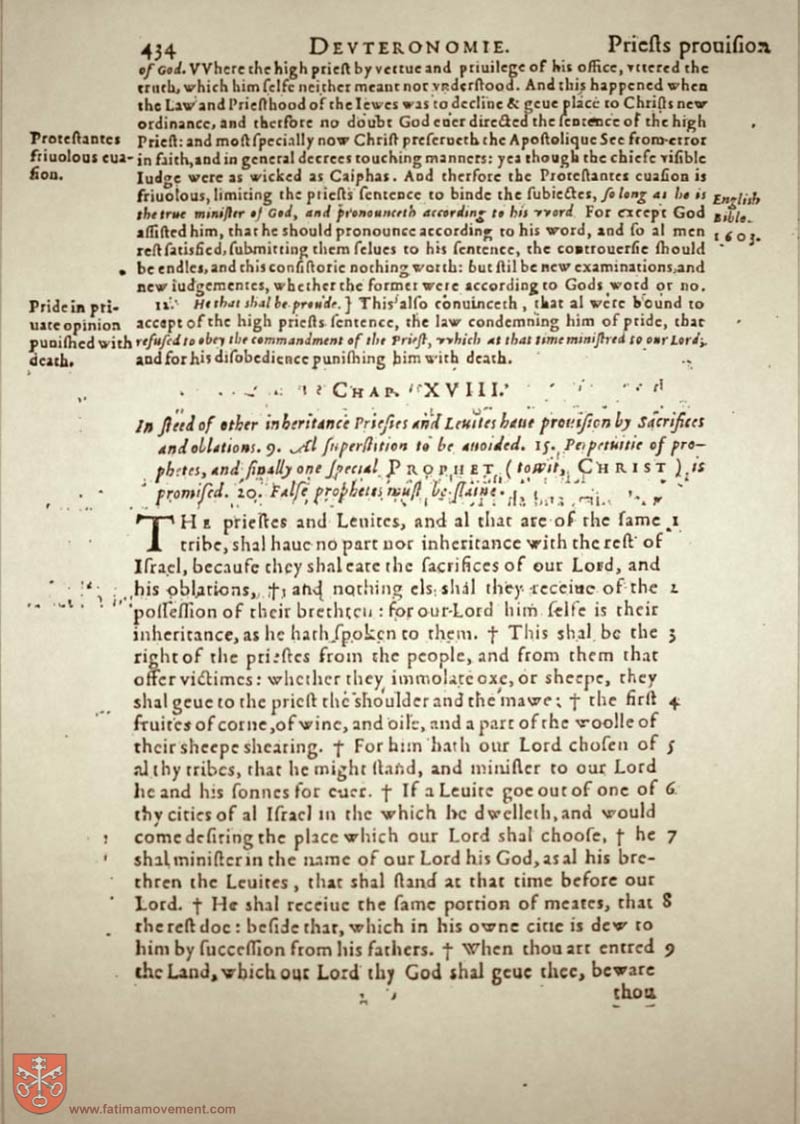 434 DEVTERONOMIE. Prieſts prouiſion
of God. VVhere the high prieſt by vertue and priuilege of his office, vttered the
truth, which him ſelfe neither meant not vnderſtood. And this happened when
the Law and Prieſthood of the Iewes was to decline & geue place to Chriſts new
ordinance, and therfore no doubt God euer directed the ſentence of the high
Proteſtantes
friuolous eua-
ſion.
Prieſt: and moſt ſpecially now Chriſt preſerueth the Apoſtolique See from error
in faith, and in general decrees touching manners: yea though the chiefe viſible
Iudge were as wicked as Caiphas. And therfore the Proteſtantes euaſion is
friuolous, limiting the prieſts ſentence to binde the ſubiectes, ſo long as he is
the true miniſter of God, and pronounceth according to his vvord. For except God
aſſiſted him, that he should pronounce according to his word, and ſo al men
reſt ſatisfied, ſubmitting them ſelues to his ſentence, the controuerſie ſhould
be endles, and this conſiſtorie nothing worth: but ſtil be new examinations, and
new iudgementes, whether the former were according to Gods word or no.
Engliſh
Bible.
1603.
Pride in pri-
uate opinion
puniſhed with
death.
12. He that shal be proude. } This alſo conuinceth, that al were bound to
accept of the high prieſts ſentence, the law condemning him of pride, that
refuſed to obey the commandment of the Prieſt, vvhich at that time miniſtred to our Lord,
and for his diſobedience puniſhing him with death.
CHAP. XVIII.
In ſteed of other inheritance Prieſtes and Leuites haue prouiſion by Sacrifices
and oblations. 9. Al ſuperſtition to be auoided. 15. Perpetuitie of pro-
phetes, and finally one ſpecial PROPHET (towit, CHRIST) is
promiſed. 20. Falſe prophetes muſt be ſlaine.
THE prieſtes and Leuites, and al that are of the ſame 1
tribe, shal haue no part nor inheritance with the reſt of
Iſrael, becauſe they shal eate the ſacrifices of our Lord, and
his oblations, † and nothing els shal they receiue of the 2
poſſeſſion of their brethren: for our Lord him ſelfe is their
inheritance, as he hath ſpoken to them. † This shal be the 3
right of the prieſtes from the people, and from them that
offer victimes: whether they immolate oxe, or sheepe, they
shal geue to the prieſt the shoulder and the mawe: † the firſt 4
fruites of corne, of wine, and oile, and a part of the woolle of
their sheepe shearing. † For him hath our Lord choſen of 5
al thy tribes, that he might ſtand, and miniſter to our Lord
he and his ſonnes for euer. † If a Leuite goe out of one of 6
thy cities of al Iſrael in the which he dwelleth, and would
come deſiring the place which our Lord shal chooſe, † he 7
shal miniſter in the name of our Lord his God, as al his bre-
thren the Leuites, that shal ſtand at that time before our
Lord. † He shal receiue the ſame portion of meates, that 8
the reſt doe: beſide that, which in his owne citie is dew to
him by ſucceſſion from his fathers. † When thou art entred 9
the Land, which our Lord thy God shal geue thee, beware
thou
www.fatimamovement.com